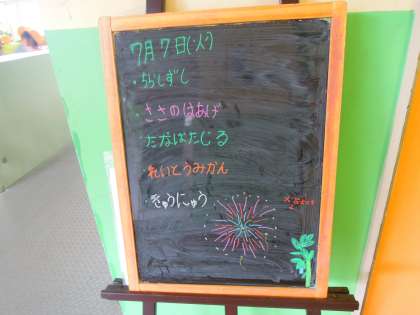 7月7日(火)
・ちらしずし
・ささのはあげ
たなばたじる
・れいとうみかん
・ぎゅうにゅう